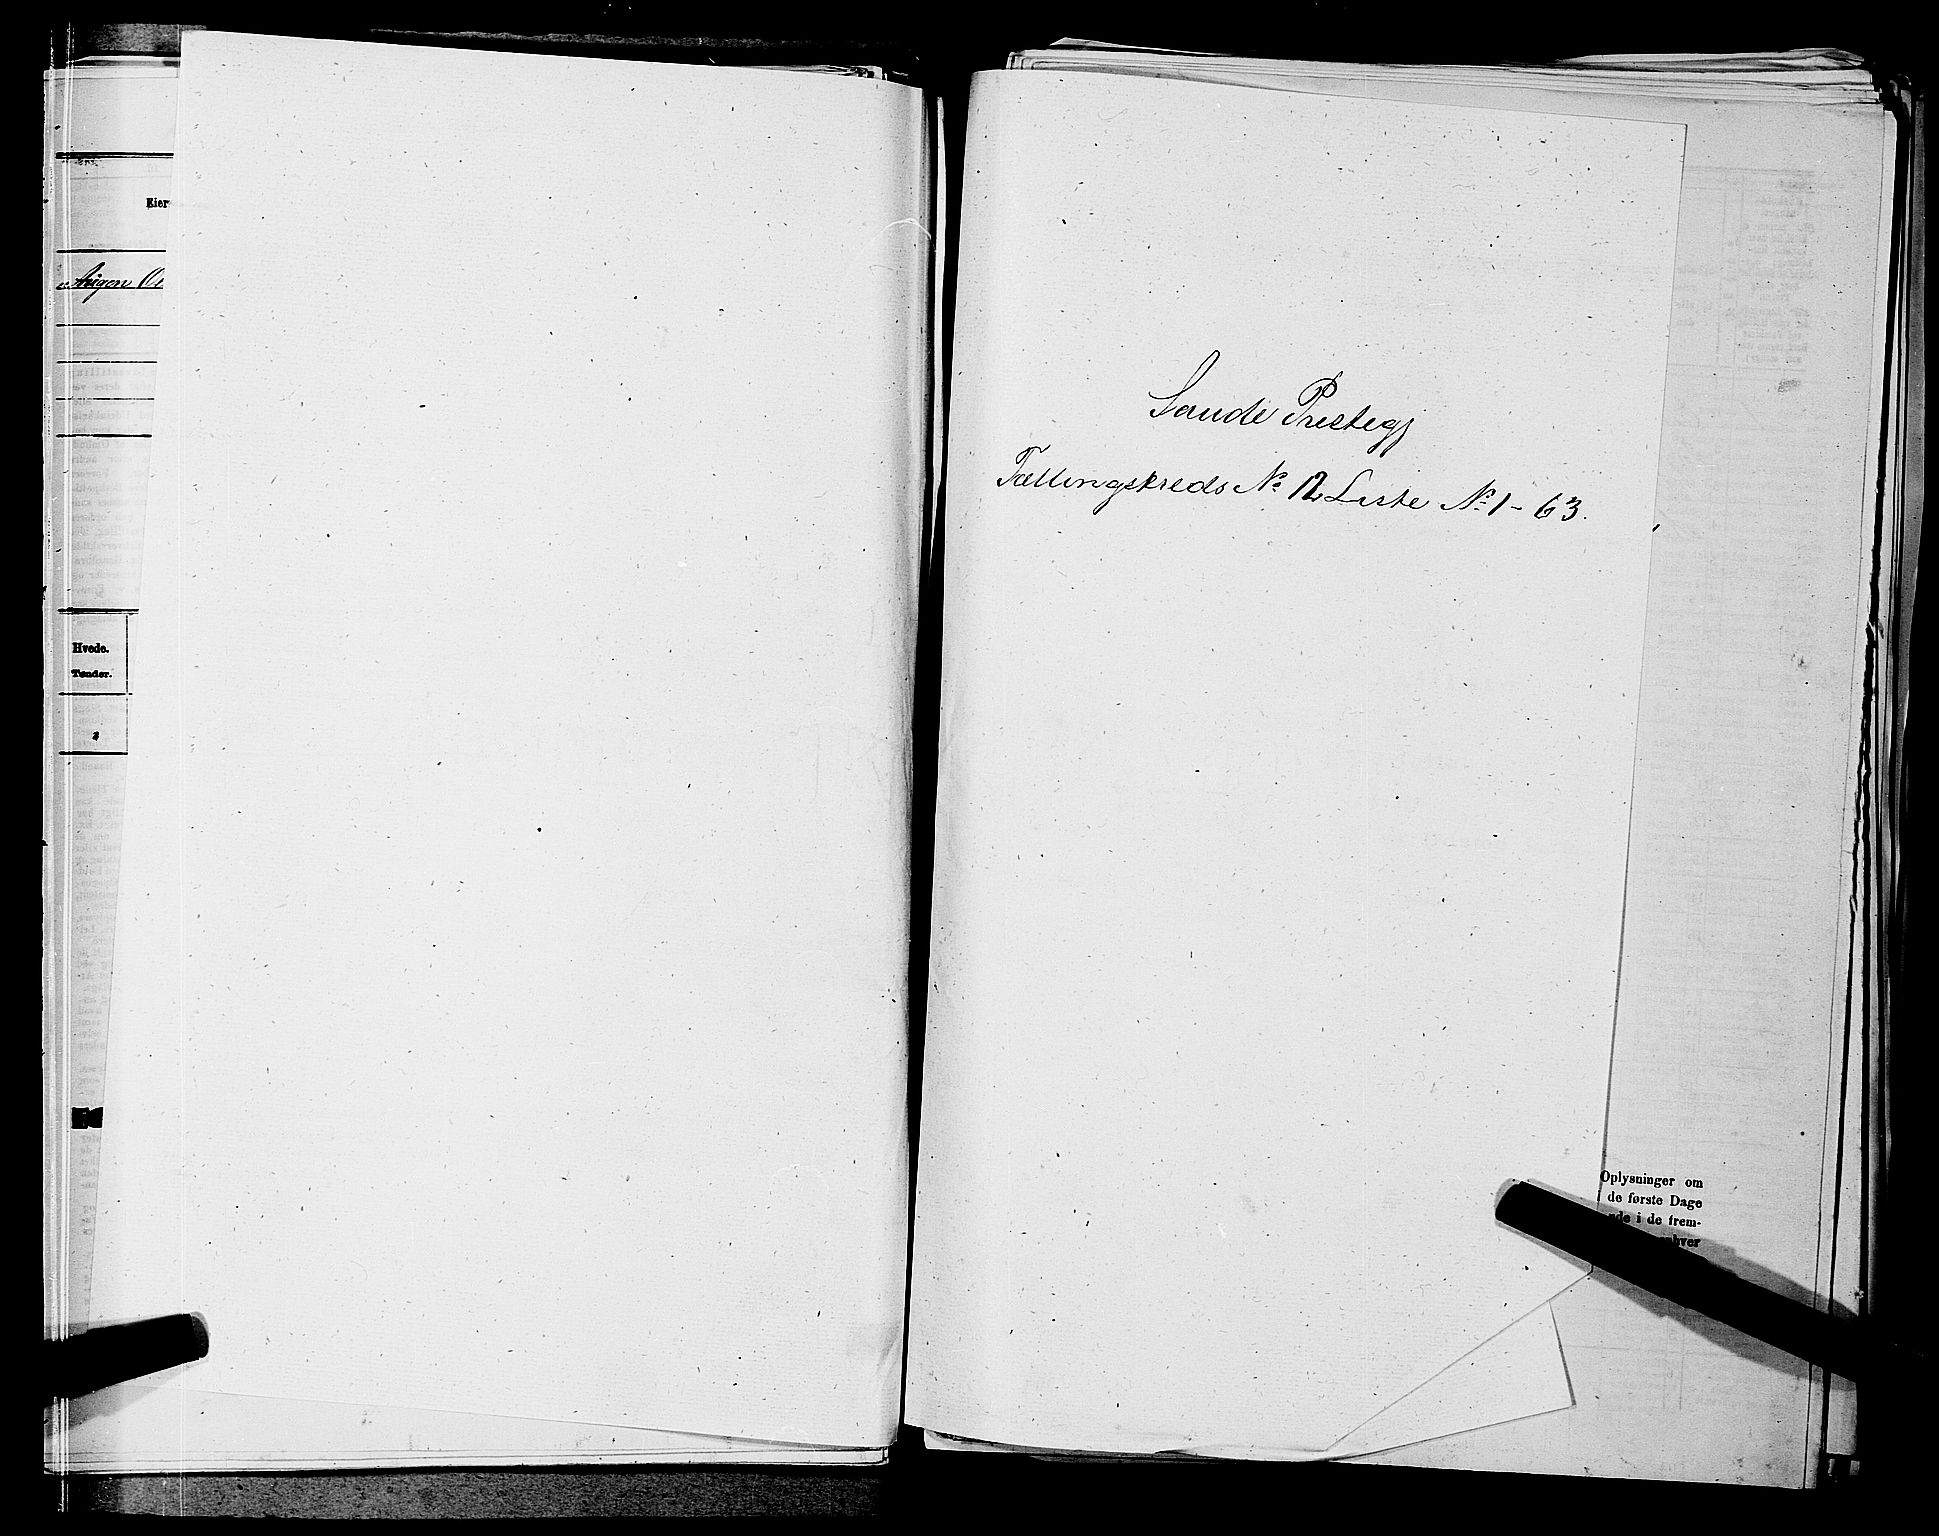 Eier
Hvede.
Tønder.
Saude Prestegj
Tællingskreds No 12 Liste No 1-63.
Oplysninger om
de første Dage
i de frem-